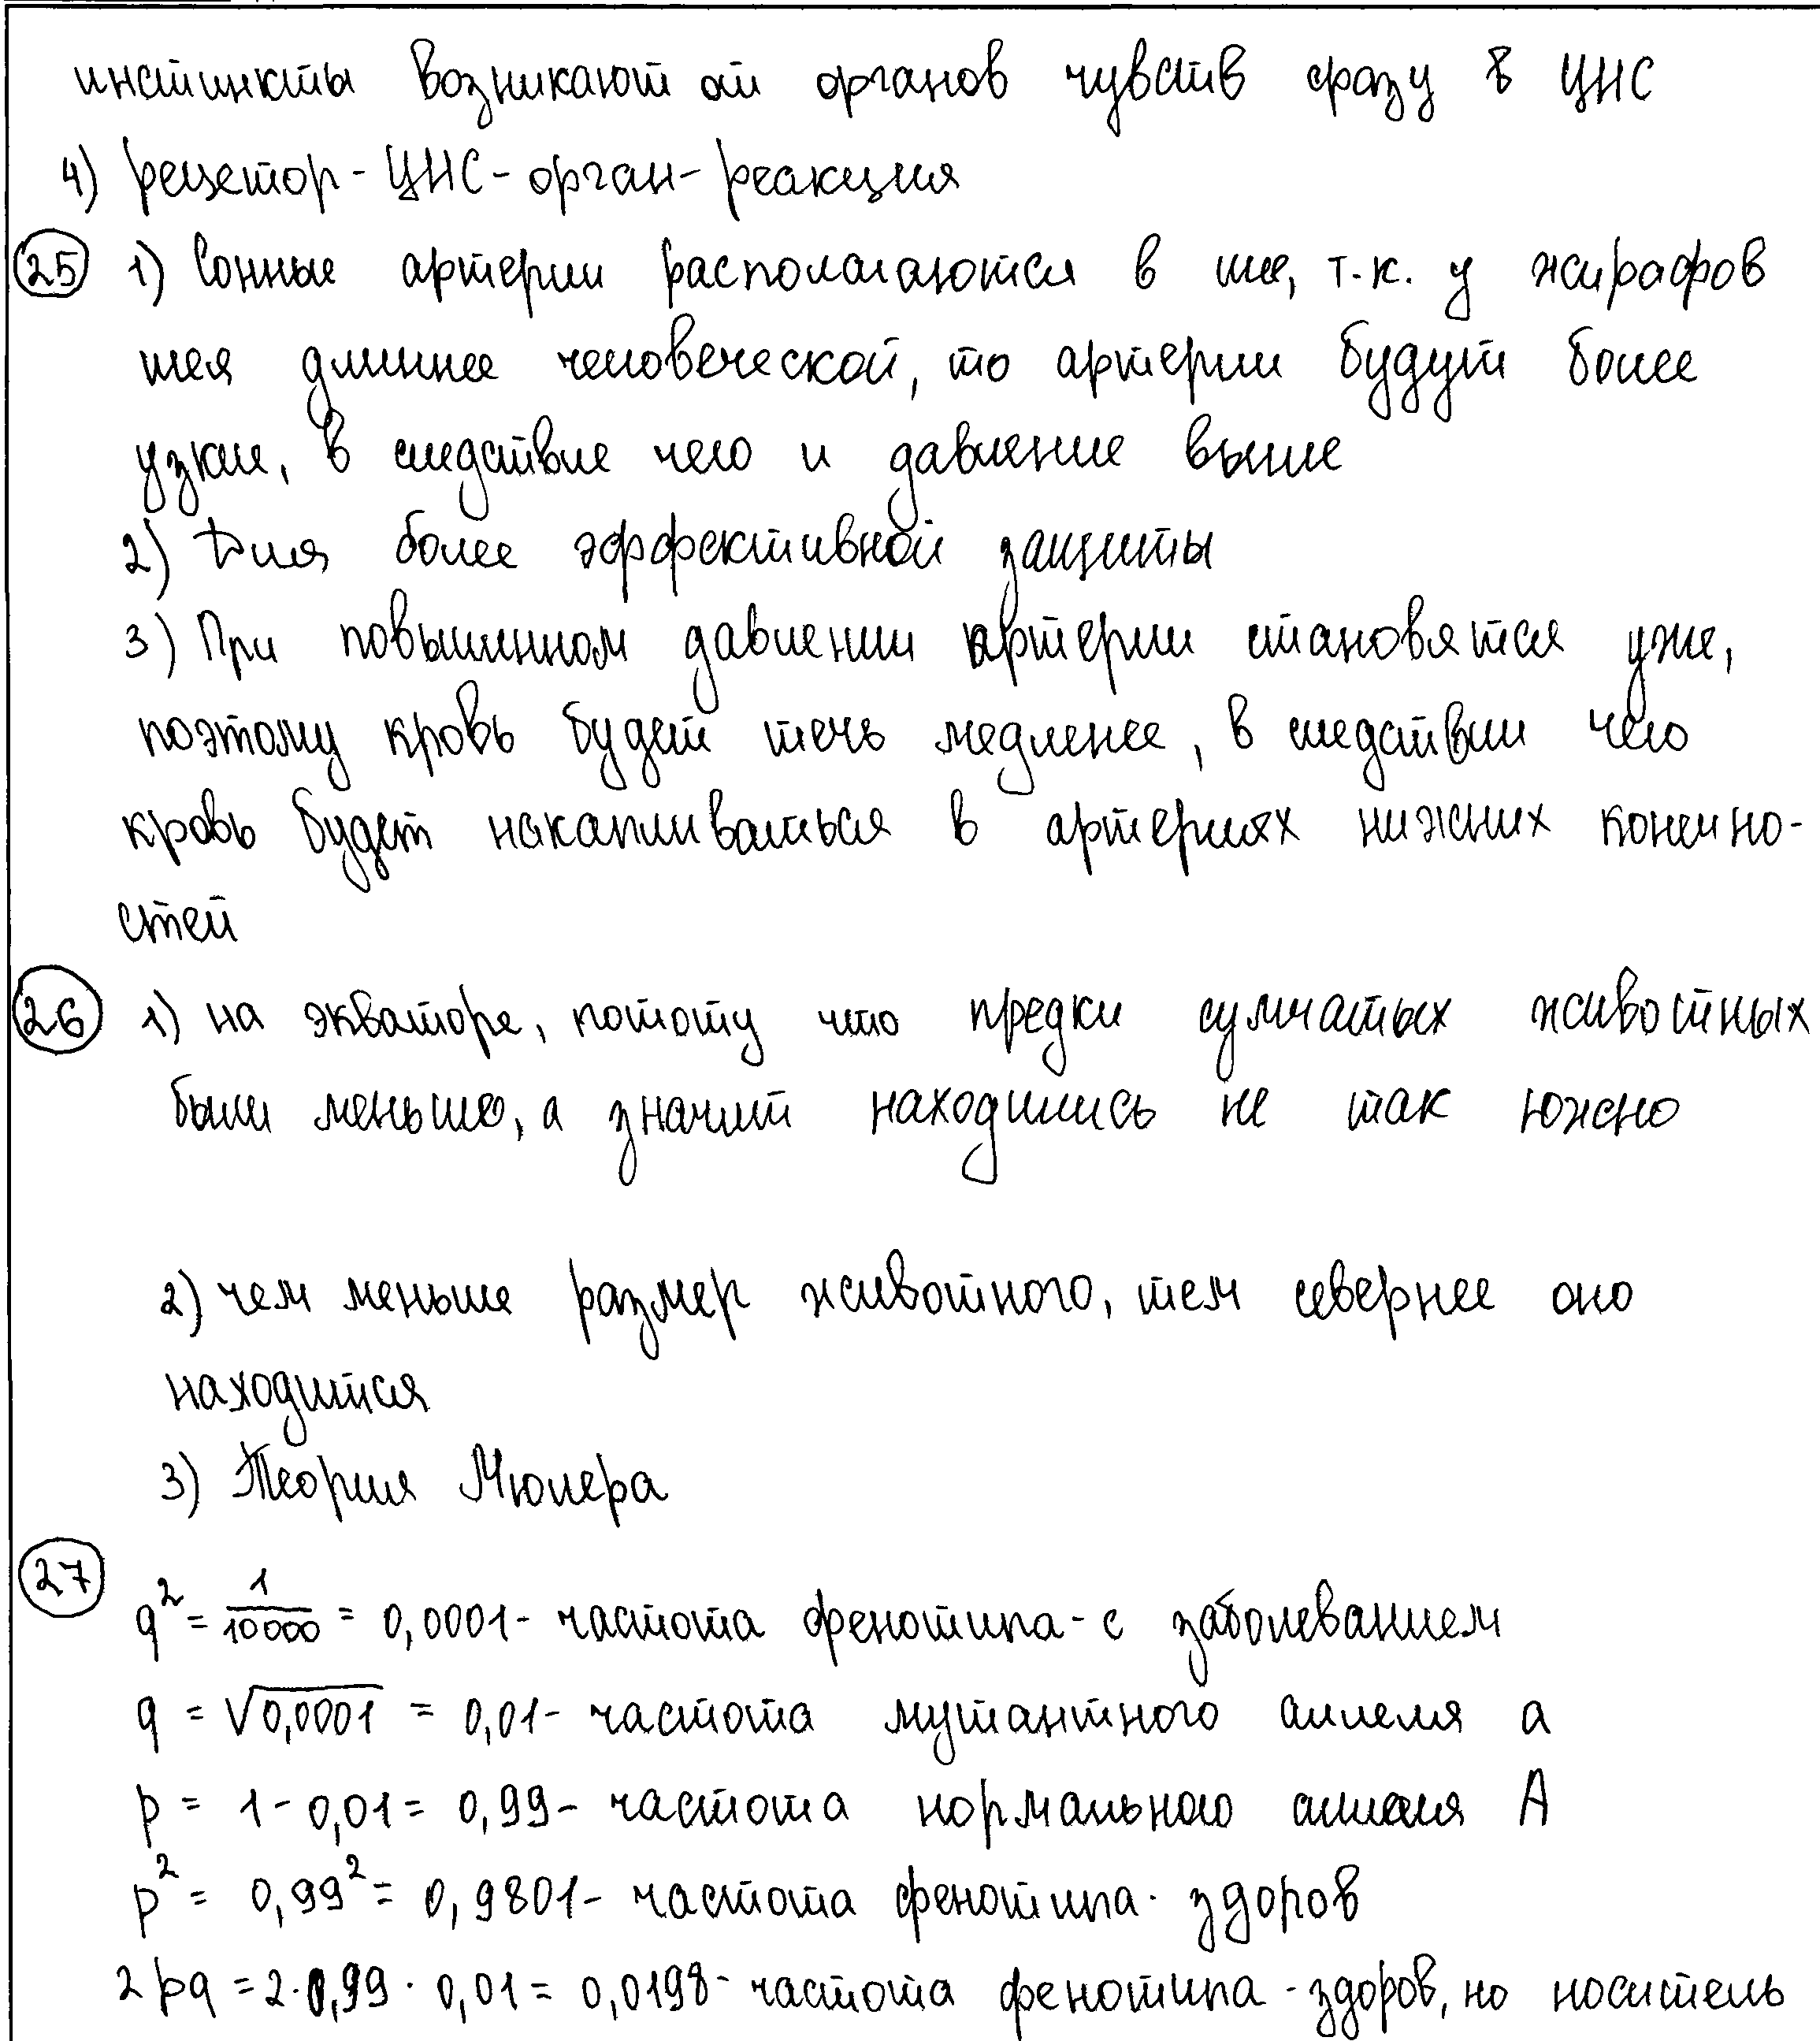 инстинкты возникают от органов чувств сразу в ЦНС
4) рецетор - ЦНС - орган - реакция
25 1) Сонные артерии располагаются в шее, т.к. у жирафов
шея длиннее человеческой, то артерии будут более
узкие, в следствие чего и давление выше
2) Для более эффективной защиты
3) При повышенном давлении артерии становятся уже,
поэтому кровь будет течь медленее, в следствии чего
кровь будет накапливаться в артериях нижних конечно-
стей
26 1) на экваторе, потому что предки сумчатых животных
были меньше, а значит находились не так южно
2) чем меньше размер животного, тем севернее оно
находится
3) Теория Мюлера
27
q² = 1/10000 = 0,0001 - частота фенотипа - с заболеванием
q = √0,0001 = 0,01 - частота мутантного аллеля а
p = 1 - 0,01 = 0,99 - частота нормального аллеля А
p² = 0,99² = 0,9801 - частота фенотипа - здоров
2pq = 2·0,99·0,01 = 0,0198 - частота фенотипа - здоров, но носитель